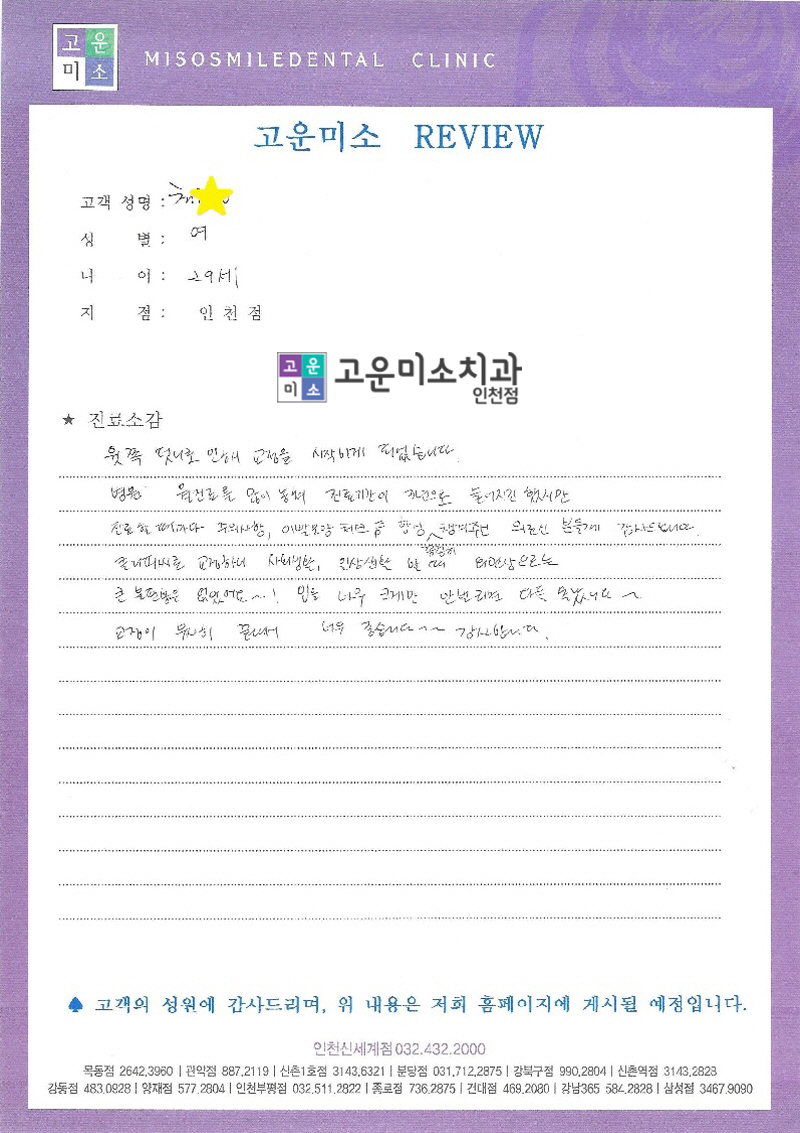 고운
미소
MISOSMILEDENTAL CLINIC
고운미소 REVIEW
고객 성명 :
성 별 : 여
나 이 : 29세
지 점 : 인천점
고운
미소
고운미소치과
인천점
★ 진료소감
윗쪽 덧니로 인해 교정을 시작하게 되었습니다.
병원 월진료를 많이 놓쳐 진료기간이 늘어지긴 했지만
진료할 때마다 주의사항, 이빨모양 체크 등 항상 챙겨주던 의료진 분들께 감사드립니다.
클리피씨로 교정하니 사회생활, 일상생활 할 때
큰 불편함은 없었어요~! 입을 너무 크게만 안벌리면 다들 몰랐습니다~
교정이 무사히 끝나서 너무 좋습니다~~ 감사합니다.
♠ 고객의 성원에 감사드리며, 위 내용은 저희 홈페이지에 게시될 예정입니다.
인천신세계점 032.432.2000
목동점 2642.3960 | 관악점 887.2119 | 신촌1호점 3143.6321 | 분당점 031.712.2875 | 강북구점 990.2804 | 신촌역점 3143.2828
강동점 483.0928 | 양재점 577.2804 | 인천부평점 032.511.2822 | 종로점 736.2875 | 건대점 469.2080 | 강남365 584.2828 | 삼성점 3467.9090